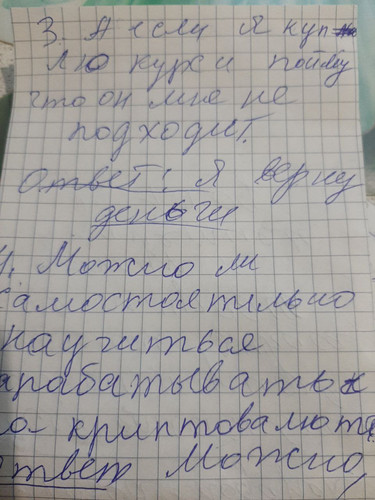 3. А если я куп
лю курс и пойму
что он мне не
подходит.
Ответ: Я верну
деньги
4. Можно ли
самостоятельно
научиться
зарабатывать
на криптовалюте
Ответ Можно,